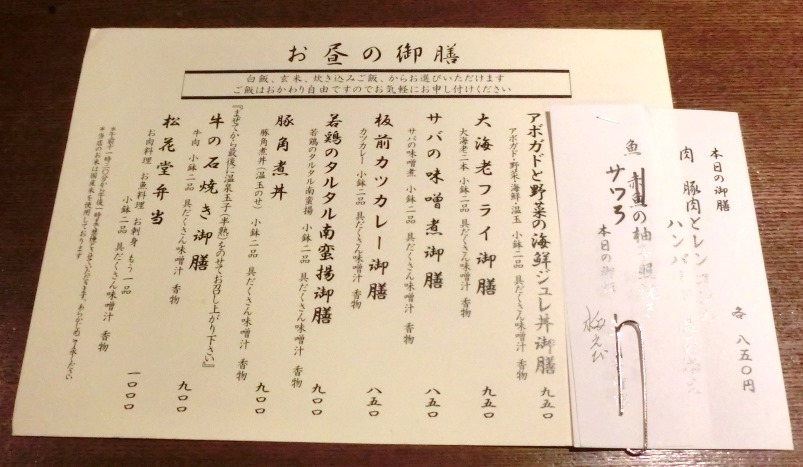 お昼の御膳
白飯、玄米、炊き込みご飯、からお選びいただけます
ご飯はおかわり自由ですのでお気軽にお申し付けください
アボガドと野菜の海鮮ジュレ丼御膳 九五〇
アボガド・野菜・海鮮・温玉 小鉢二品 具だくさん味噌汁 香物
大海老フライ御膳 九五〇
大海老二本 小鉢二品 具だくさん味噌汁 香物
サバの味噌煮御膳 八五〇
サバの味噌煮 小鉢二品 具だくさん味噌汁 香物
板前カツカレー御膳 八五〇
カツカレー 小鉢二品 具だくさん味噌汁 香物
若鶏のタルタル南蛮揚御膳 九〇〇
若鶏のタルタル南蛮揚 小鉢二品 具だくさん味噌汁 香物
豚角煮丼 九〇〇
豚角煮丼(温玉のせ) 小鉢二品 具だくさん味噌汁 香物
『まぜてから最後に温泉玉子(半熟)をのせてお召し上がり下さい』
牛の石焼き御膳 九〇〇
牛肉 小鉢二品 具だくさん味噌汁 香物
松花堂弁当 一〇〇〇
お肉料理 お魚料理 お刺身 もう一品
小鉢二品 具だくさん味噌汁 香物
※当店のお米は国産米を使用しております
本日の御膳 各 八五〇円
肉 豚肉とレンコン
ハンバ
魚 サワラの柚
本日の御